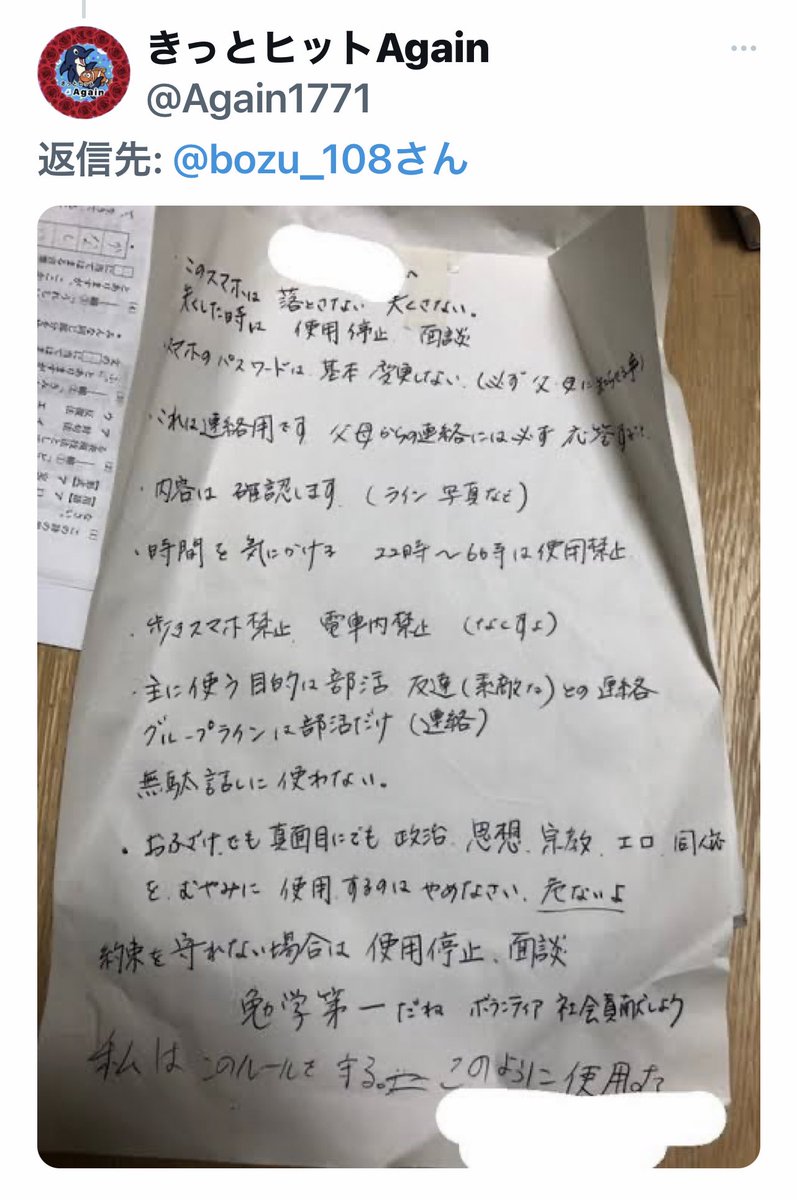 きっとヒットAgain
@Again1771
返信先: @bozu_108さん
へ
・このスマホは 落とさない 失くさない。
失くした時は 使用停止 面談
・スマホのパスワードは、基本 変更しない。(必ず 父・母に
・これは連絡用です 父母からの連絡には必ず 応答
・内容は 確認します (ライン 写真など)
・時間を 気にかける 22時〜6時は使用禁止
・歩きスマホ禁止 電車内禁止 (なくすよ)
・主に使う目的は部活 友達(素敵な)との連絡
グループラインは部活だけ (連絡)
無駄話しに使わない。
・おふざけでも 真面目にでも 政治、思想、宗教、エロ、同人
を、むやみに 使用するのは やめなさい、危ないよ
約束を守れない場合は 使用停止、面談
勉学第一だね ボランティア 社会貢献しよう
私は このルールを 守る。 このように使用